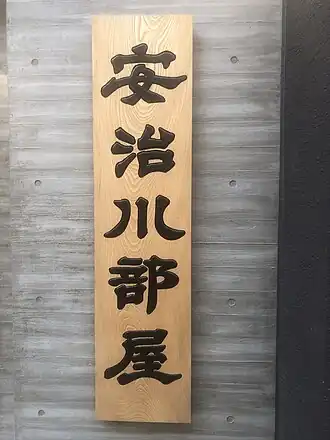 安治川部屋